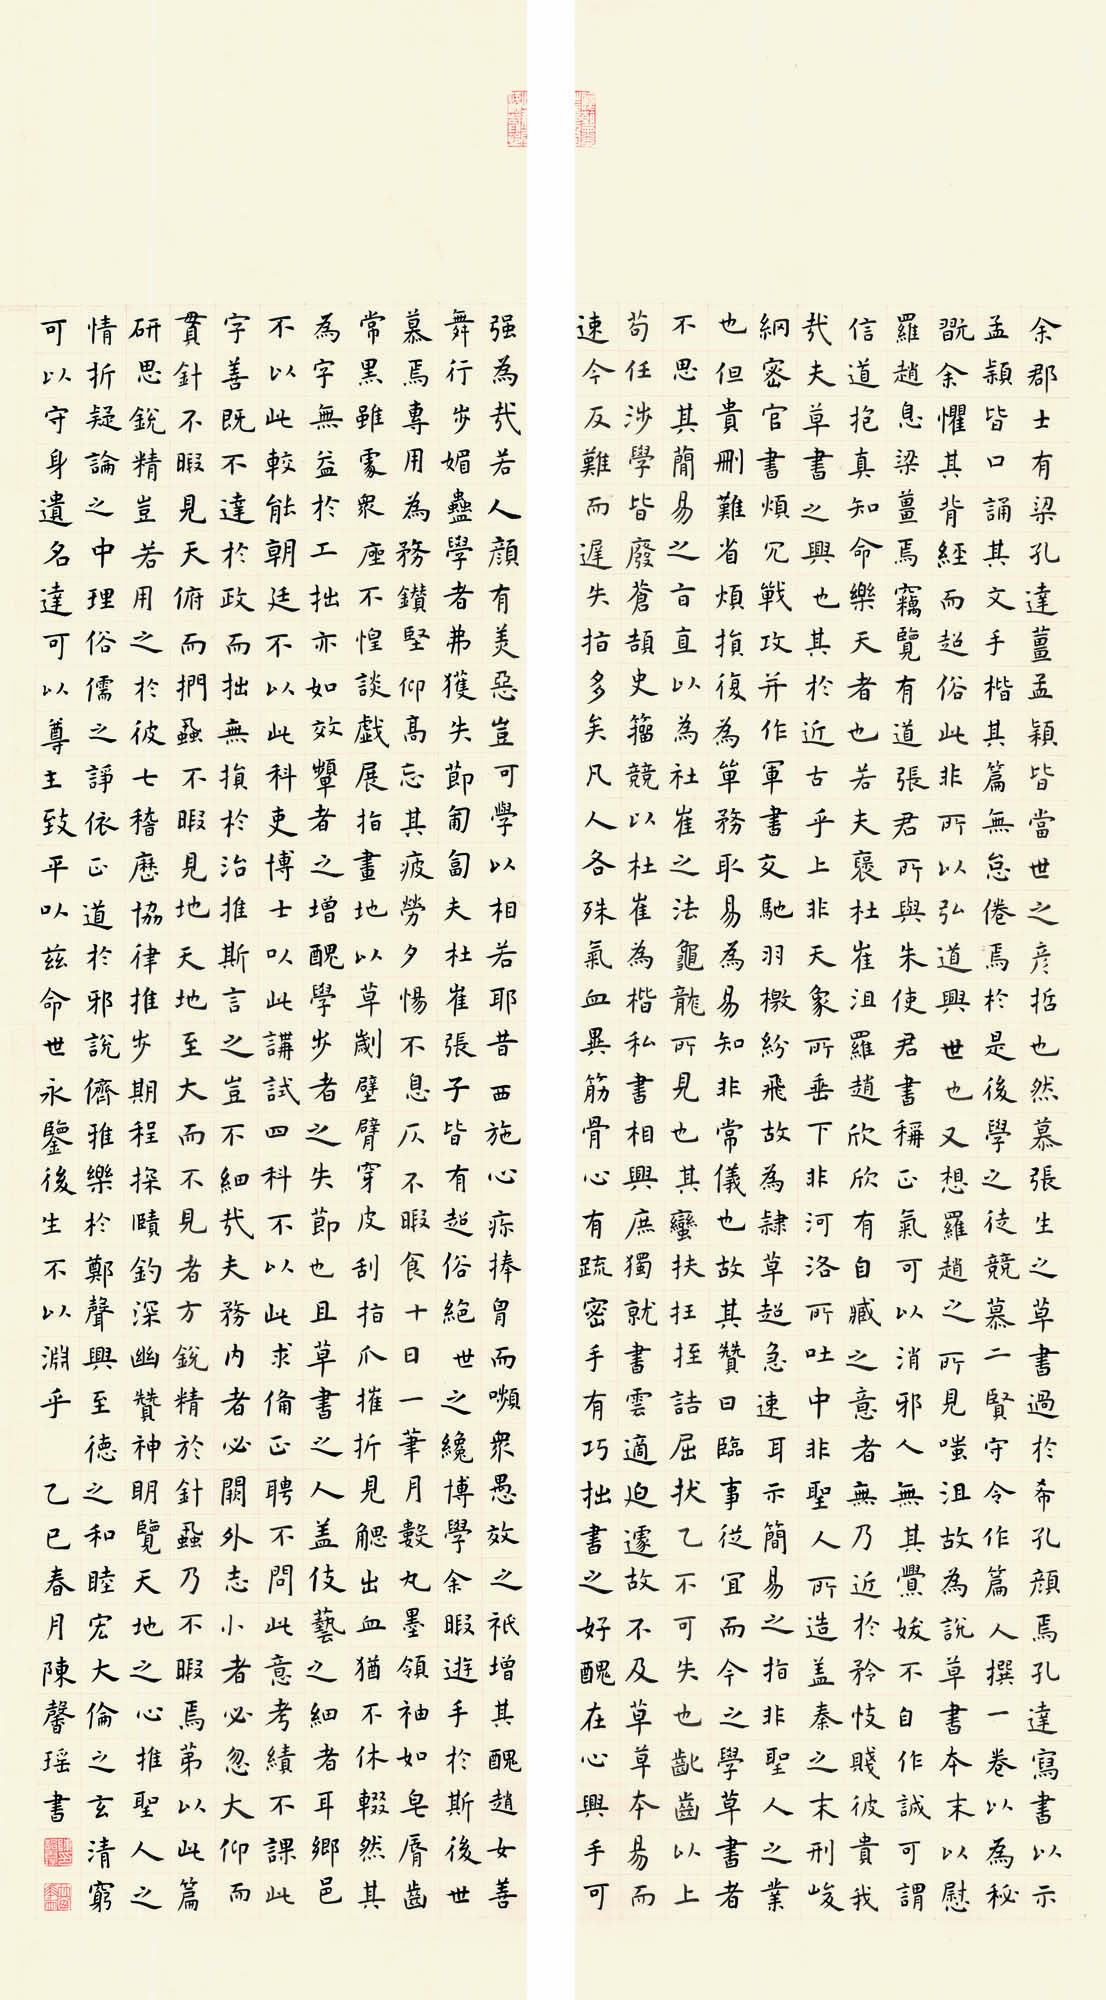 余郡士有梁孔達薑孟穎皆當世之彥哲也然慕張生之草書過於希孔顏焉孔達寫書以示
孟穎皆口誦其文手楷其篇無怠倦焉於是後學之徒競慕二賢守令作篇人撰一卷以為秘
翫余懼其背經而趨俗此非所以弘道興世也又想羅趙之所見嗤沮故為說草書本末以慰
羅趙息梁薑焉竊覽有道張君所與朱使君書稱正氣可以消邪人無其釁妖不自作誠可謂
信道抱真知命樂天者也若夫褒杜崔沮羅趙欣欣有自臧之意者無乃近於矜忮賤彼貴我
哉夫草書之興也其於近古乎上非天象所垂下非河洛所吐中非聖人所造蓋秦之末刑峻
網密官書煩冗戰攻并作軍書交馳羽檄紛飛故為隸草趨急速耳示簡易之指非聖人之業
也但貴刪難省煩損復為單務取易為易知非常儀也故其贊曰臨事從宜而今之學草書者
不思其簡易之旨直以為杜崔之法龜龍所見也其蠻扶拄挃詰屈犮乙不可失也齔齒以上
苟任涉學皆廢蒼頡史籀競以杜崔為楷私書相興庶獨就書雲適迫遽故不及草草本易而
速今反難而遲失指多矣凡人各殊氣血異筋骨心有疏密手有巧拙書之好醜在心興手可
强為哉若人顏有美惡豈可學以相若耶昔西施心疹捧胷而嚬衆愚效之祇增其醜趙女善
舞行步媚蠱學者弗獲失節匍匐夫杜崔張子皆有超俗絕世之纔博學余暇遊手於斯後世
慕焉專用為務鑽堅仰高忘其疲勞夕惕不息仄不暇食十日一筆月數丸墨領袖如皂脣齒
常黑雖處衆座不惶談戲展指畫地以草劌壁臂穿皮刮指爪摧折見鰓出血猶不休輟然其
為字無益於工拙亦如效顰者之增醜學步者之失節也且草書之人蓋伎藝之細者耳鄉邑
不以此較能朝廷不以此科吏博士以此講試四科不以此求備正聘不問此意考績不課此
字善既不達於政而拙無損於治推斯言之豈不細哉夫務內者必闕外志小者必忽大仰而
貫針不暇見天俯而捫蝨不暇見地天地至大而不見者方銳精於針蝨乃不暇焉第以此篇
研思銳精豈若用之於彼七稽歷協律推步期程探賾釣深幽贊神明覽天地之心推聖人之
情折疑論之中理俗儒之諍依正道於邪說儕雅樂於鄭聲興至德之和睦宏大倫之玄清窮
可以守身遺名達可以尊主致平以茲命世永鑒後生不以淵乎　乙巳春月陳馨瑤書